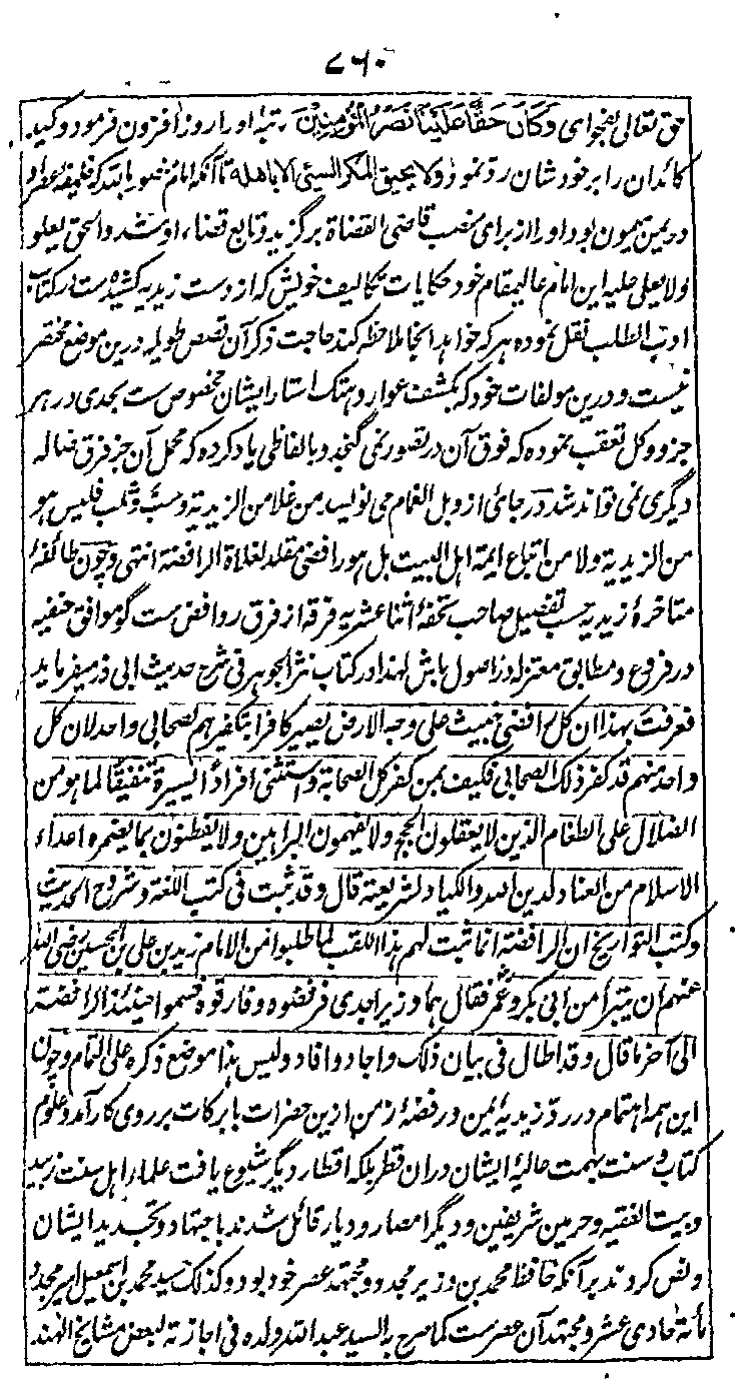 ۷۶۰
حق تعالی بفحوای وَكَانَ حَقًّا عَلَيْنَا نَصْرُ الْمُؤْمِنِيْنَ رتبۂ او را روز افزون فرمود و کید
کائدان را بر خود شان رد نمود ولا یحیق المکر السیئ الا باهله تا آنکه امام منصور بالله که خلیفه عصر او
در یمن میمون بود او را از برای منصب قاضی القضاة برگزید و تابع قضاء او شد والحق یعلو
ولا یعلی علیه این امام عالیمقام خود حکایات تکالیف خویش که از دست زیدیه کشیده ست در کتاب
ادب الطلب نقل نموده هر که خواهد آنجا ملاحظه کند حاجت ذکر آن قصص طویله درین موضع مختصر
نیست و درین مولفات خود که بکشف عوار و هتک استار ایشان مخصوص ست بحدی در هر
جزو و کل تعقب نموده که فوق آن در تصور نمی گنجد و بالفاظی یاد کرده که محمل آن جز فرق ضاله
دیگری نمی تواند شد در جائ از وبل الغمام می نویسد من غلا من الزیدیة وسب وثلب فلیس هو
من الزیدیة ولا من اتباع ایمة اهل البیت بل هو رافضی مقلد لغلاة الرافضة انتهی و چون طائفۂ
متاخرۂ زیدیه حسب تفصیل صاحب تحفۂ اثنا عشریه فرقه از فرق روافض ست گو موافق حنفیه
در فروع و مطابق معتزله در اصول باش لهذا در کتاب نثر الجوهر فی شرح حدیث ابی ذر میفرماید
فعرفت بهذا ان کل رافضی خبیث علی وجه الارض یصیر کافرا بتکفیرهم لصحابی واحد لان کل
واحد منهم قد کفر ذلک الصحابی فکیف بمن کفر کل الصحابة واستثنی افراداً یسیرة تنفیقاً لما هو من
الضلال علی الطغام الذین لا یعقلون الحجج ولا یفهمون البراهین ولا یفطنون بما یضمره اعداء
الاسلام من العناد لدین الله والکیاد لشریعته قال وقد ثبت فی کتب اللغة وشروح الحدیث
وکتب التواریخ ان الرافضة انما ثبت لهم هذا اللقب لما طلبوا من الامام زید بن علی بن الحسین رضی الله
عنهم ان یتبرأ من ابی بکر وعمر فقال هما وزیرا جدی فرفضوه وفارقوه فسموا حینئذ الرافضة
الی آخر ما قال وقد اطال فی بیان ذلک واجاد وافاد ولیس هذا موضع ذکره علی التمام و چون
این همه اهتمام در رد زیدیۂ یمن و رفضۂ زمن ازین حضرات با برکات بر روی کار آمد و علوم
کتاب و سنت بهمت عالیۂ ایشان دران قطر بلکه اقطار دیگر شیوع یافت علماء اهل سنت زبید
وبیت الفقیه و حرمین شریفین و دیگر امصار و دیار قائل شدند باجتهاد و تجدید ایشان
و نص کردند بر آنکه حافظ محمد بن وزیر مجدد و مجتهد عصر خود بود وکذلک سید محمد بن اسمعیل امیر مجدد
مائة حادی عشر و مجتهد آن عصر ست کما صرح به السید عبد الله ولده فی اجازته لبعض مشایخ الهند